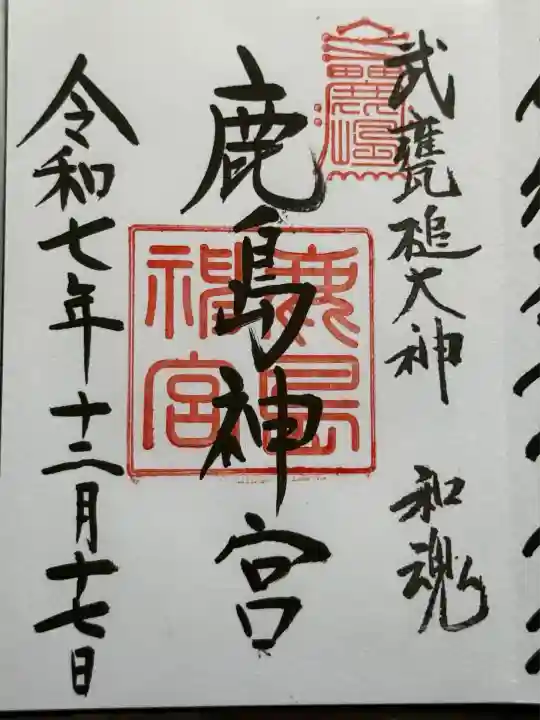 武甕槌大神 和魂
鹿島神宮
鹿島神宮
令和七年十二月十七日